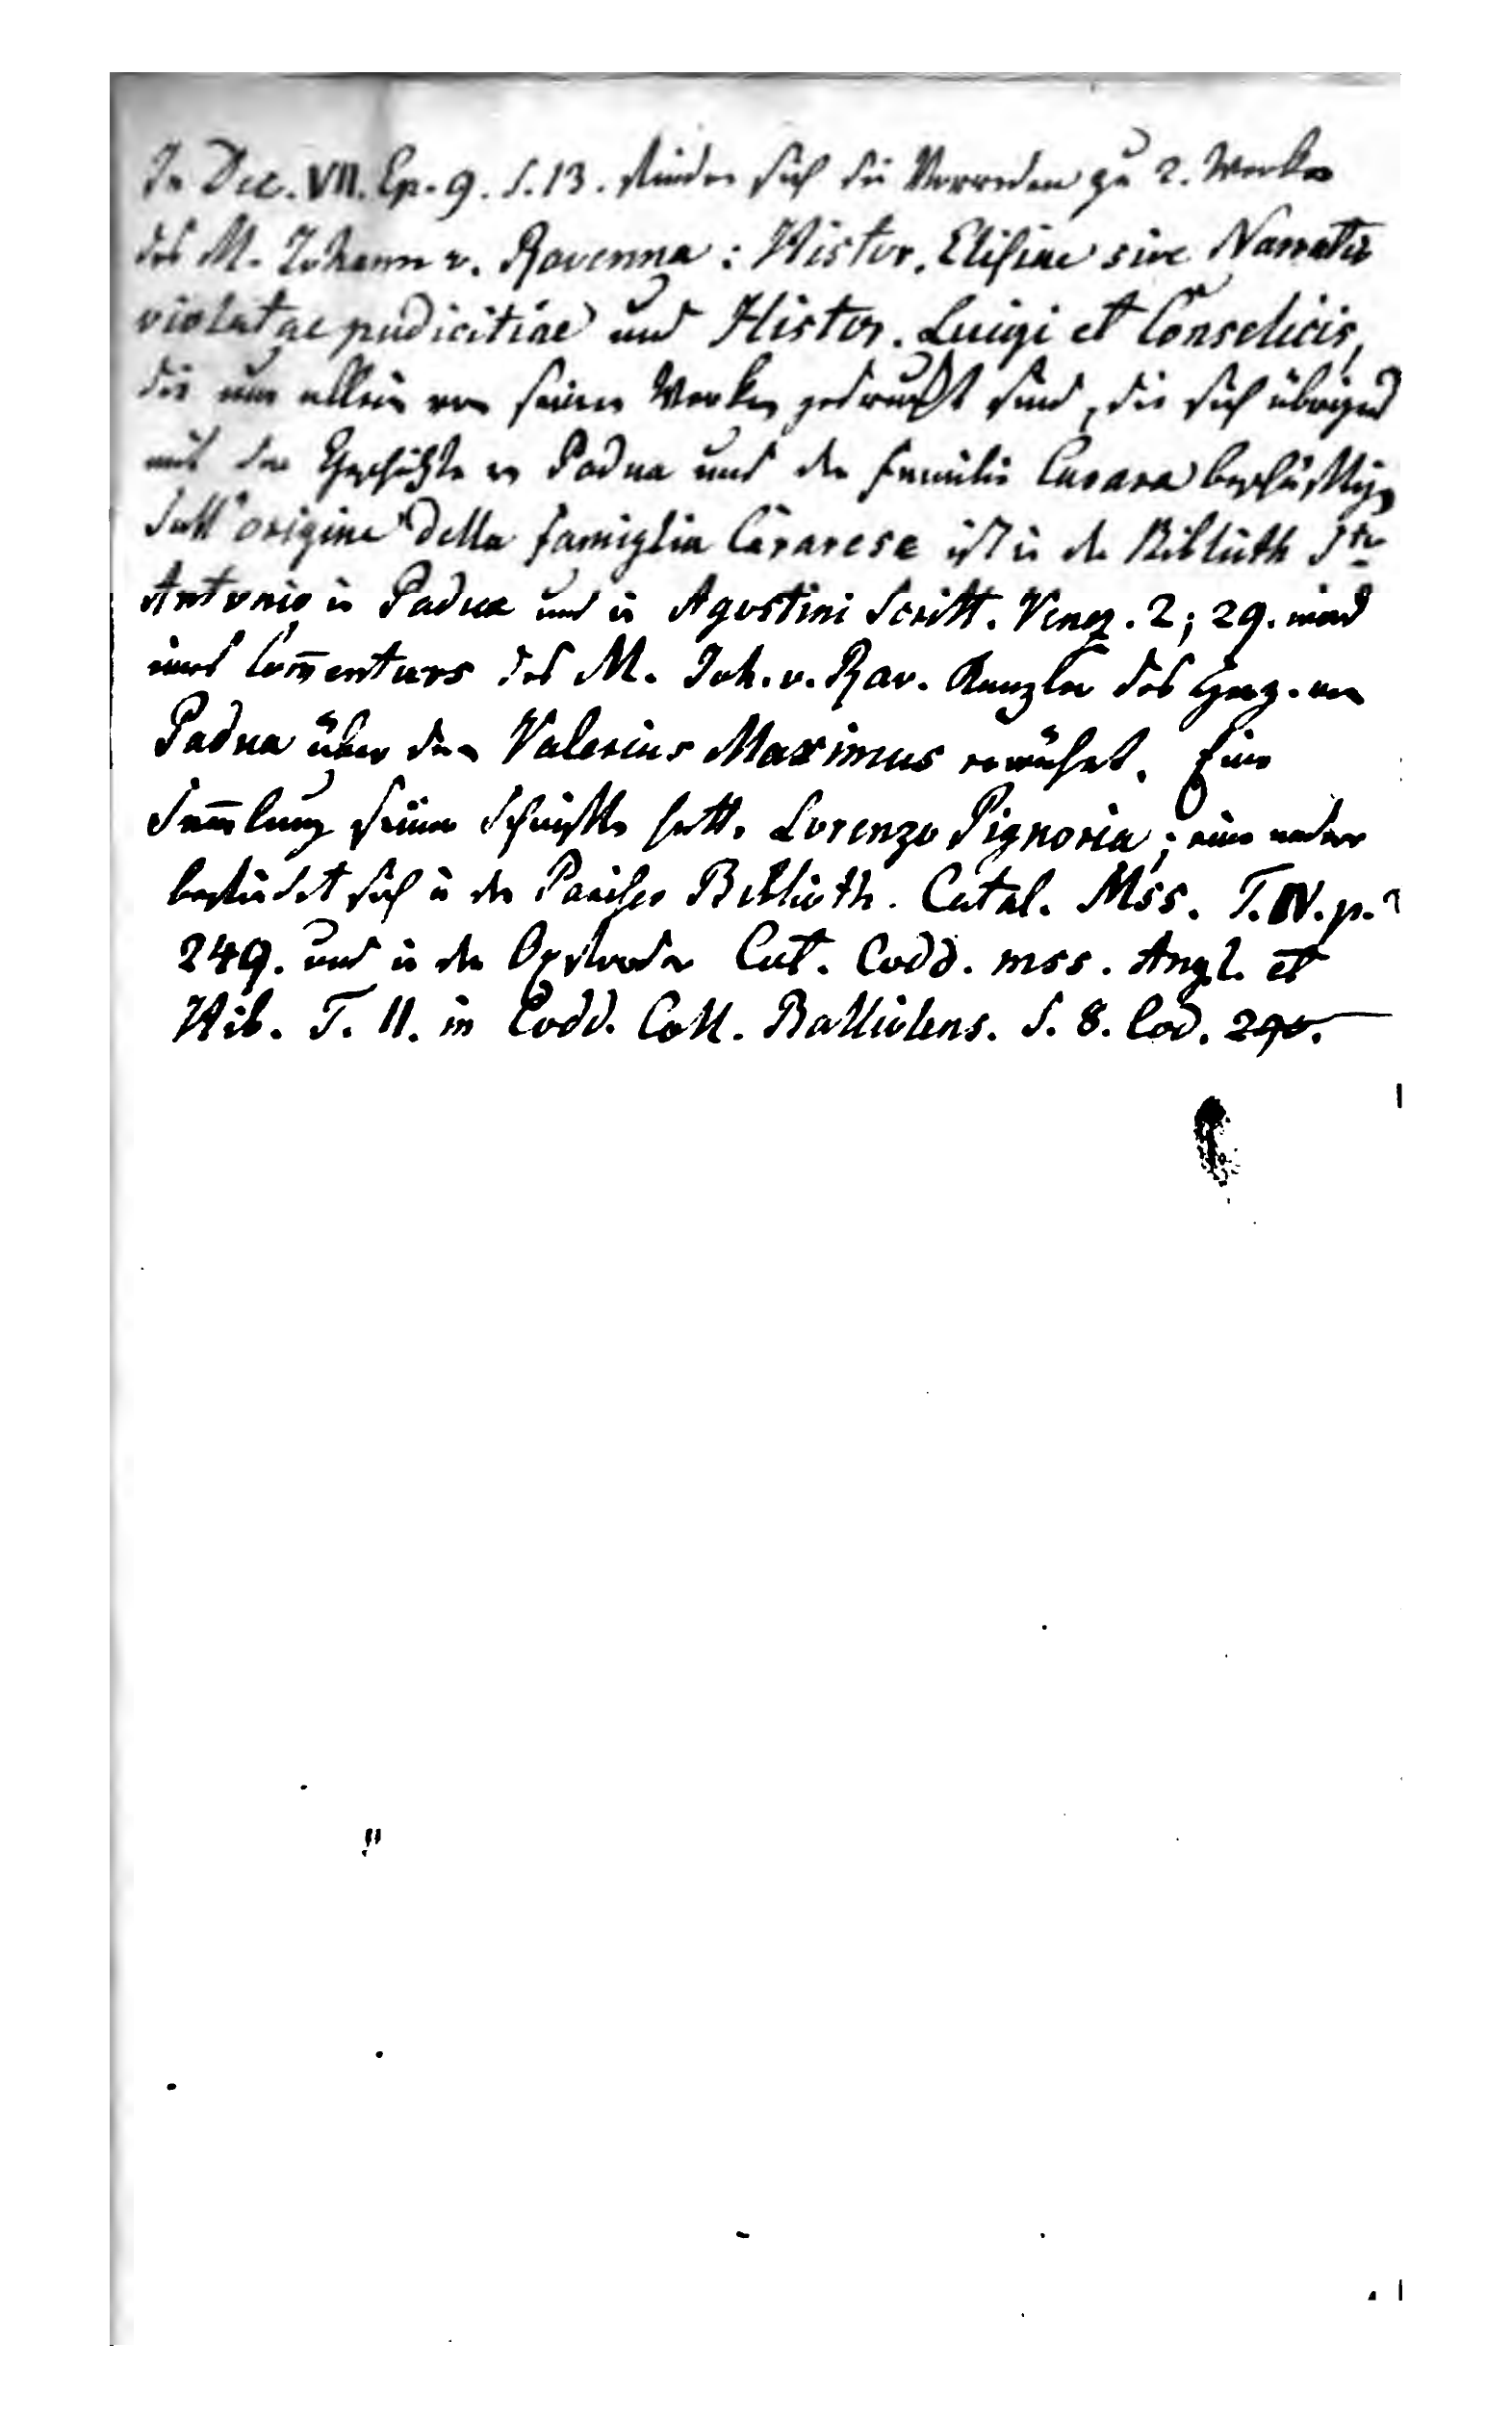 In Dec. VII. Ep. 9. S. 13. finden sich die Vorreden zu 2. Werken
des M. Johann v. Ravenna: Histor. Elisiae sive Narratio
violatae pudicitiae und Histor. Luigi et Conselicis,
die nun allein von seinen Werken gedruckt sind, die sich übrigens
mit der Geschichte v Padua und der Familie Carara beschäftigen
dell'origine della famiglia Cararese ist in der Biblioth Sto
Antonio in Padua und in Agostini Scritt. Venez. 2; 29. wird
eines Com̅entars des M. Joh. v. Rav. Kanzler des Herz. von
Padua über den Valerius Maximus erwähnt. Eine
Sam̅lung seiner Schriften hatte Lorenzo Pignoria; eine andere
befindet sich in der Pariser Biblioth. Catal. Mss. T. IV. p.
249. und in der Oxforder Cat. Codd. mss. Angl. et
Hib. T. II. in Codd. Coll. Balliolens. S. 8. Cod. 290.